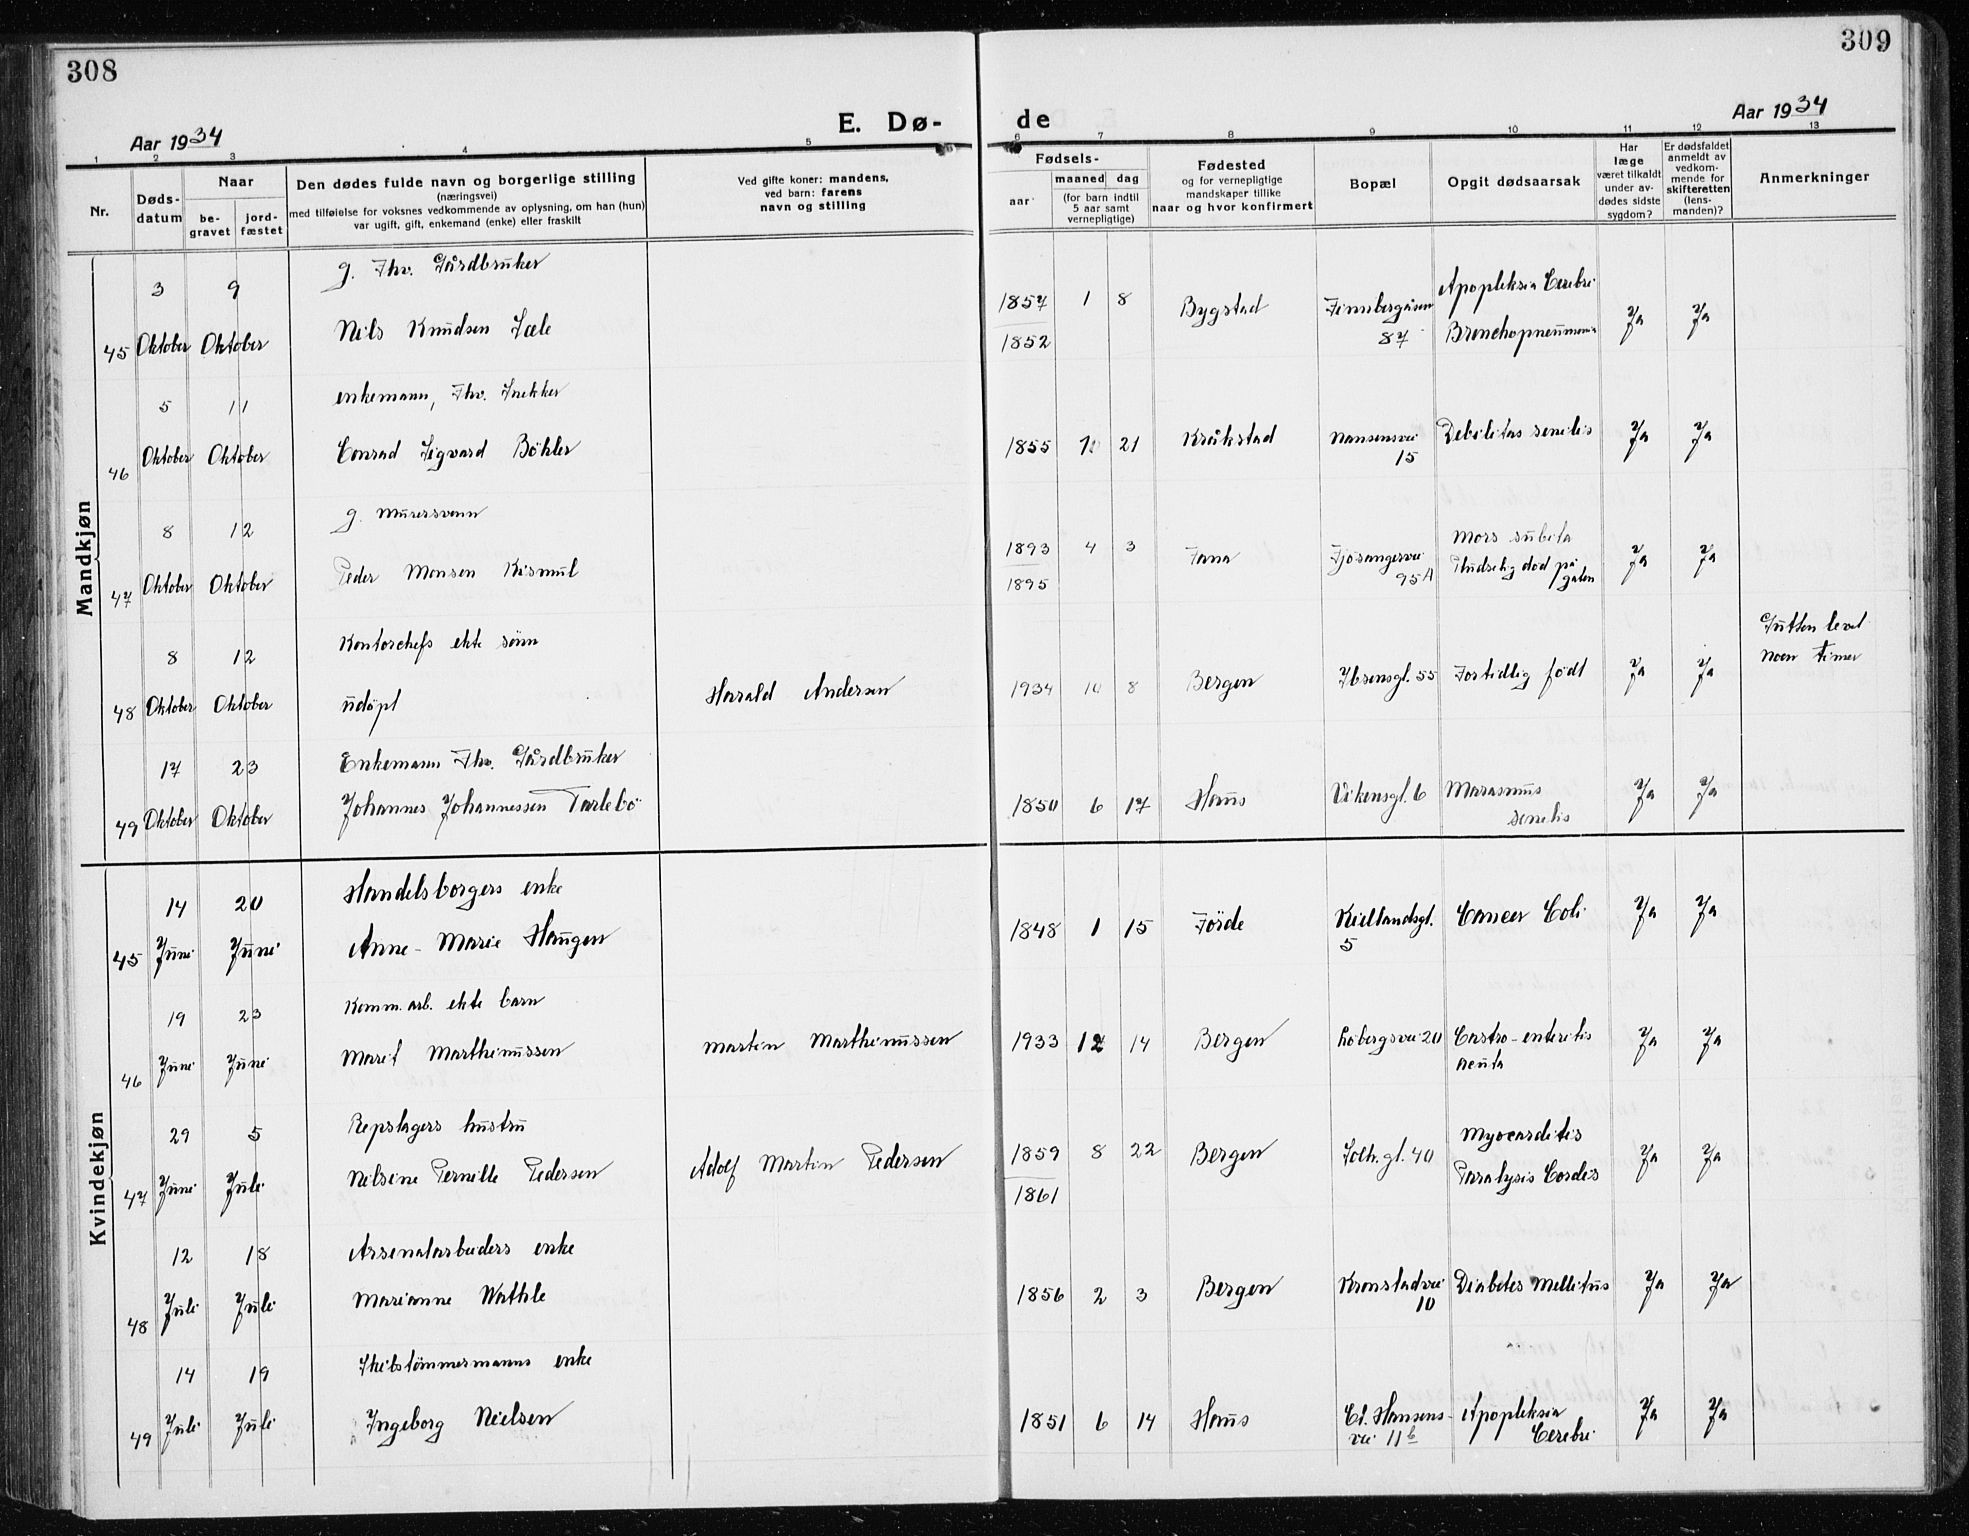 308
309
Aar 1934
E. Dø-
de
Aar 1934
1 2 3 4 5 6 7 8 9 10 11 12 13
Nr.
Døds-
datum
Naar
be-
gravet
jord-
fæstet
Den dødes fulde navn og borgerlige stilling
(næringsvei)
med tilføielse for voksnes vedkommende av oplysning, om han (hun)
var ugift, gift, enkemand (enke) eller fraskilt
Ved gifte koner: mandens,
ved barn: farens
navn og stilling
Fødsels-
aar
maaned dag
(for barn indtil
5 aar samt
vernepligtige)
Fødested
og for vernepligtige
mandskaper tillike
naar og hvor konfirmert
Bopæl
Opgit dødsaarsak
Har
læge
været tilkaldt
under av-
dødes sidste
sygdom?
Er dødsfaldet
anmeldt av
vedkom-
mende for
skifteretten
(lens-
manden)?
Anmerkninger
Mandkjøn
3 9 g. Fhv. Gårdbruker
45 Oktober Oktober Nils Knudsen Sæle
1857 1 8 Bygstad Finnbergåsen Apopleksia Cerebri Ja Ja
1852 87 Bronchopneumonia
5 11 enkemann, Fhv. Snekker
46 Oktober Oktober Conrad Sigvard Böhler
1855 10 21 Kråkstad Nansensvei Debilitas senilis Ja Ja
15
8 12 g. Murersvenn
47 Oktober Oktober Peder Monsen Kismul
1893 4 3 Fana Fjøsangervei Mors subita Ja Ja
1895 95A Pludselig død på
gaten
8 12 Kontorchefs ekte sönn
48 Oktober Oktober udöpt Harald Andersen
1934 10 8 Bergen Ibsensgt. 55 Fortidlig født Ja Ja
Gutten levet
noen timer
17 23 Enkemann Fhv. Gårdbruker
49 Oktober Oktober Johannes Johannessen Tarlebö
1850 6 17 Haus Vikensgt. 6 Marasmus Ja Ja
senilis
Kvindekjøn
14 20 Handelsborgers enke
45 Juni Juni Anne-Marie Haugen
1848 1 15 Förde Kiellandsgt. Cancer Coli Ja Ja
5
19 23 Komm.arb. ekte barn
46 Juni Juni Marit Marthinussen Martin Marthinussen
1933 12 14 Bergen Löbergsvei 20 Gastro-enteritis Ja Ja
acuta
29 5 Repslagers hustru
47 Juni Juli Nilsine Pernille Pedersen Adolf Martin Pedersen
1859 8 22 Bergen Solh.gt. 40 Myocarditis Ja Ja
1861 Paralysis Cordis
12 18 Arsenalarbeiders enke
48 Juli Juli Marianne Wathle
1856 2 3 Bergen Kronstadvei Diabetes Mellitus Ja Ja
10
14 19 Skibstömmermanns enke
49 Juli Juli Ingeborg Nielsen
1851 6 14 Haus Cl. Hansens- Apopleksia Ja Ja
vei 11b Cerebri